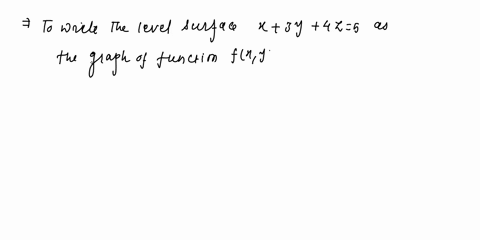 ⇒ To write the level surface x + 3y + 4z = 5 as
the graph of function f(x, y